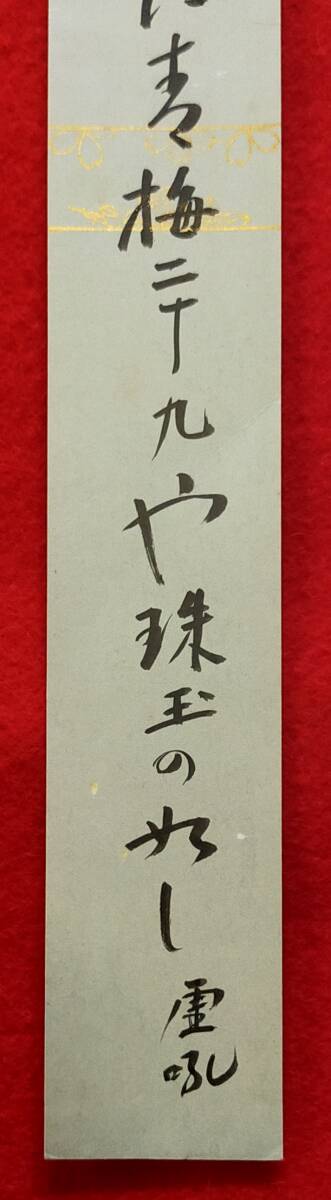 青梅二十九や珠玉の如し
虚吼